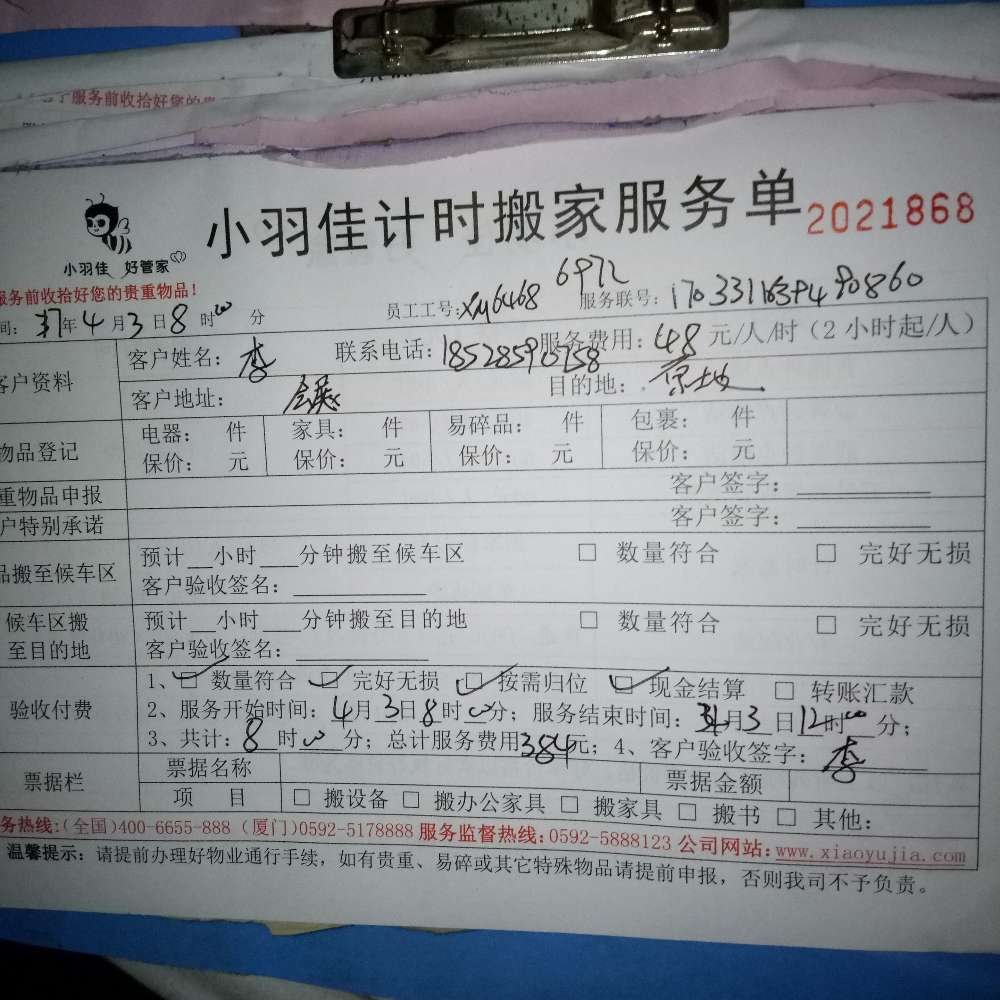 服务前收拾好您的贵
小羽佳计时搬家服务单 2021868
小羽佳 好管家
服务前收拾好您的贵重物品!
6972
员工工号:XM6468 服务联号:
间: 年4月3日8时00分
客户资料 客户姓名:李 联系电话:18528590758 服务费用:48元/人/时(2小时起/人)
客户地址:会展 目的地:原地
物品登记 电器: 件 家具: 件 易碎品: 件 包裹: 件
保价: 元 保价: 元 保价: 元 保价: 元
重物品申报 客户签字:
户特别承诺 客户签字:
品搬至候车区 预计__小时___分钟搬至候车区 □ 数量符合 □ 完好无损
客户验收签名:
候车区搬至目的地 预计__小时___分钟搬至目的地 □ 数量符合 □ 完好无损
客户验收签名:
验收付费 1、☑ 数量符合 ☑ 完好无损 ☑ 按需归位 ☑ 现金结算 □ 转账汇款
2、服务开始时间:4月3日8时00分;服务结束时间:4月3日12时00分;
3、共计:8时00分;总计服务费用384元;4、客户验收签字:李
票据栏 票据名称 票据金额
项 目 □ 搬设备 □ 搬办公家具 □ 搬家具 □ 搬书 □ 其他:
务热线:(全国)400-6655-888 (厦门)0592-5178888 服务监督热线:0592-5888123 公司网站:www.xiaoyujia.com
温馨提示:请提前办理好物业通行手续,如有贵重、易碎或其它特殊物品请提前申报,否则我司不予负责。